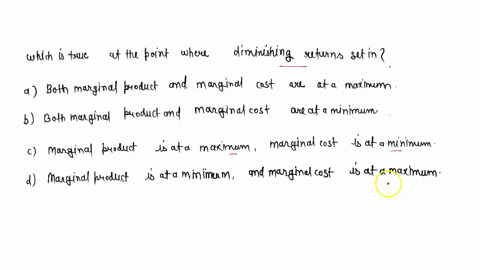 which is true at the point where diminishing returns set in?
a) Both marginal product and marginal cost are at a maximum.
b) Both marginal product and marginal cost are at a minimum.
c) Marginal product is at a maximum, marginal cost is at a minimum.
d) Marginal product is at a minimum, and marginal cost is at a maximum.